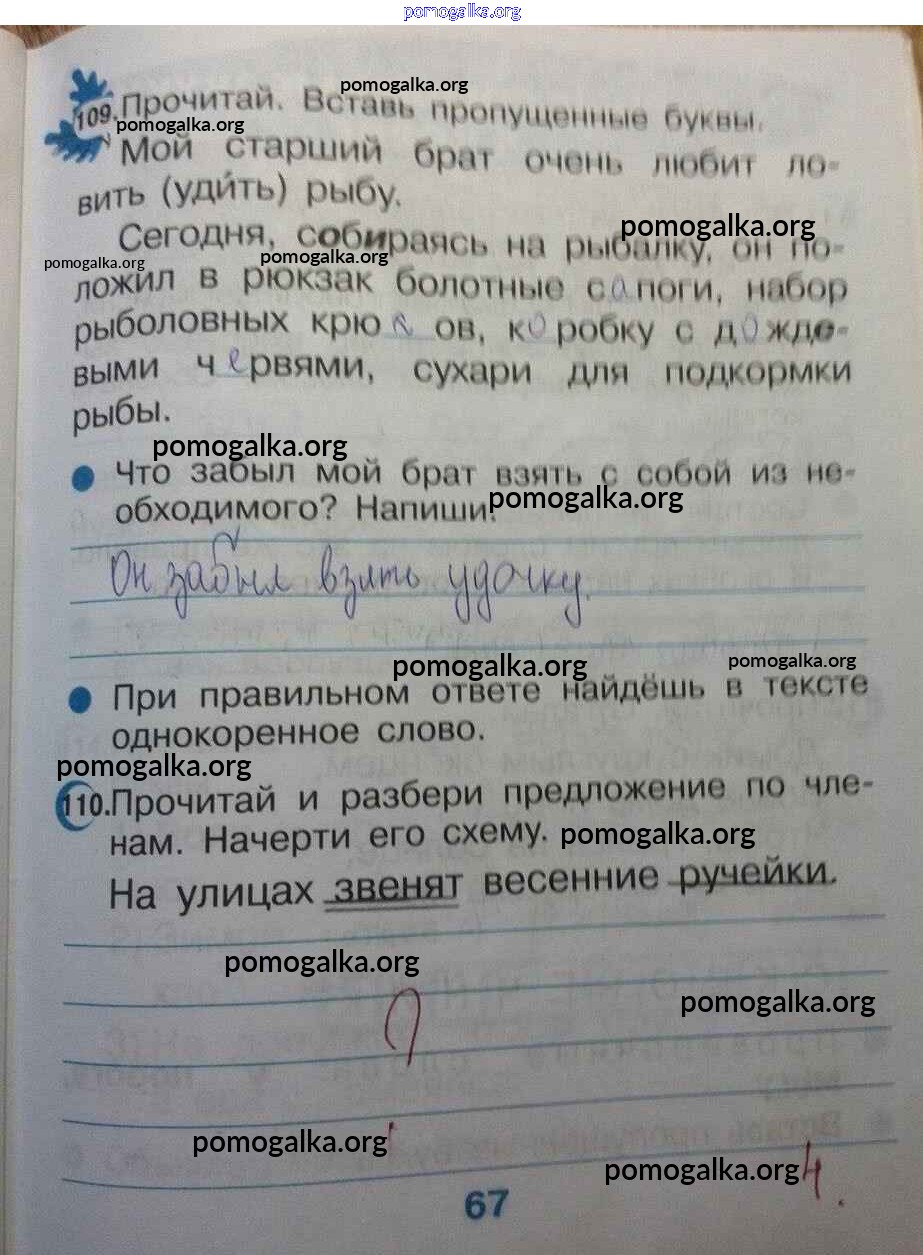 pomogalka.org
pomogalka.org
109. Прочитай. Вставь пропущенные буквы.
pomogalka.org
Мой старший брат очень любит ло-
вить (уди́ть) рыбу.
pomogalka.org
Сегодня, собираясь на рыбалку, он по-
pomogalka.org
pomogalka.org
ложил в рюкзак болотные сапоги, набор
рыболовных крюков, коробку с дожде-
выми червями, сухари для подкормки
рыбы.
pomogalka.org
Что забыл мой брат взять с собой из не-
pomogalka.org
обходимого? Напиши.
Он забыл взять удочку.
pomogalka.org
pomogalka.org
При правильном ответе найдёшь в тексте
однокоренное слово.
pomogalka.org
110. Прочитай и разбери предложение по чле-
нам. Начерти его схему.
pomogalka.org
На улицах звенят весенние ручейки.
pomogalka.org
pomogalka.org
?
pomogalka.org
pomogalka.org
4.
67